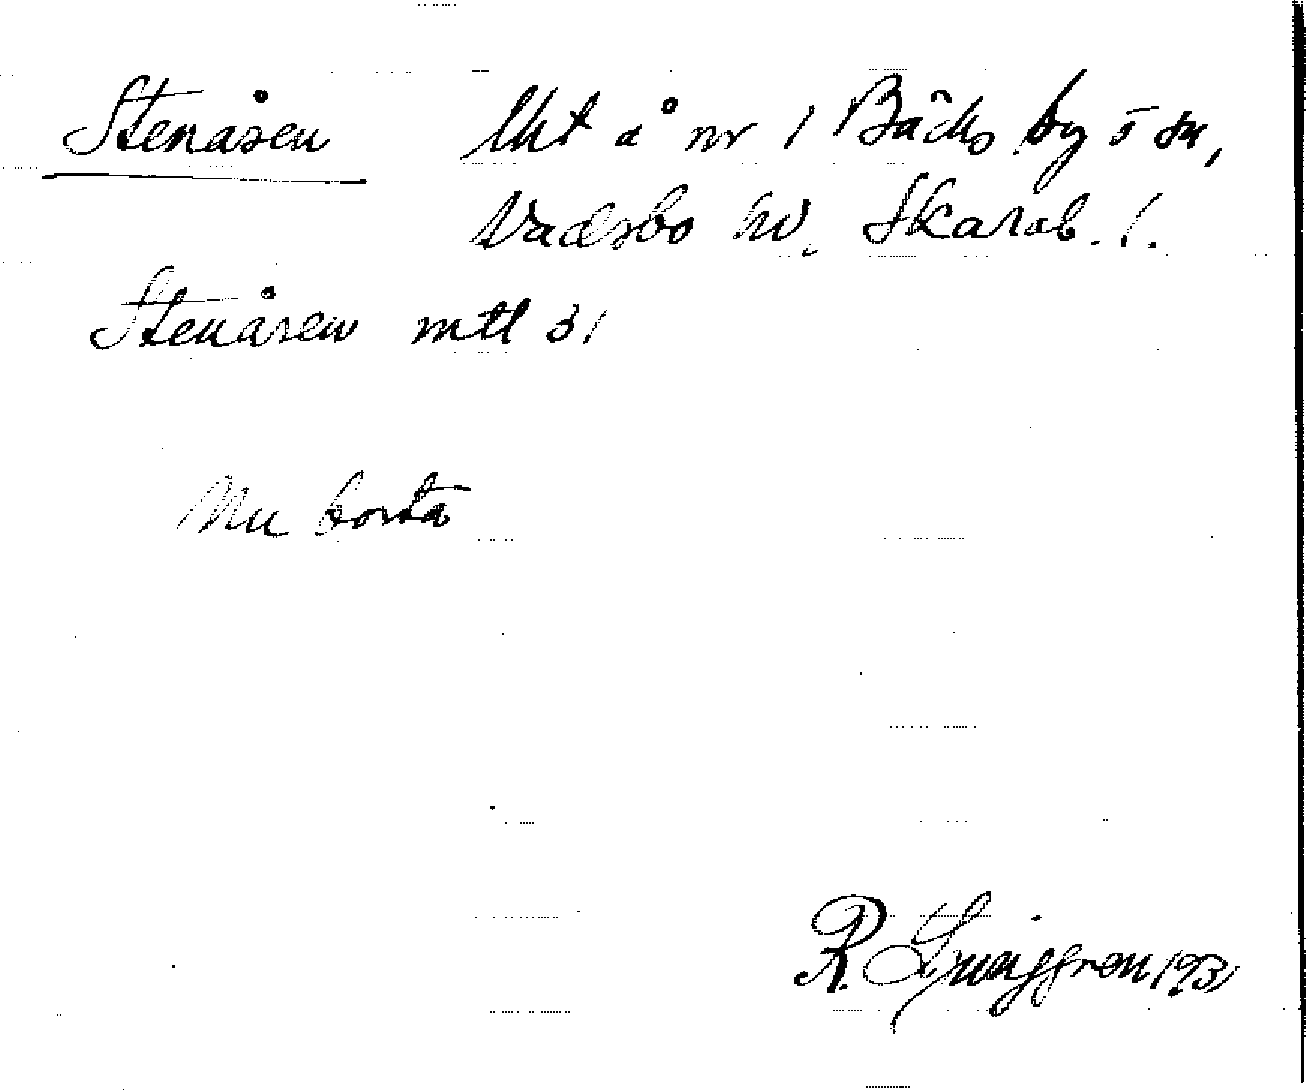 Stenåsen lht å nr 1 Bäcks by i sn,
Vadsbo hd. Skarab. l.
Stenåsen mtl 31
Nu borta
R. Ljunggren 1931